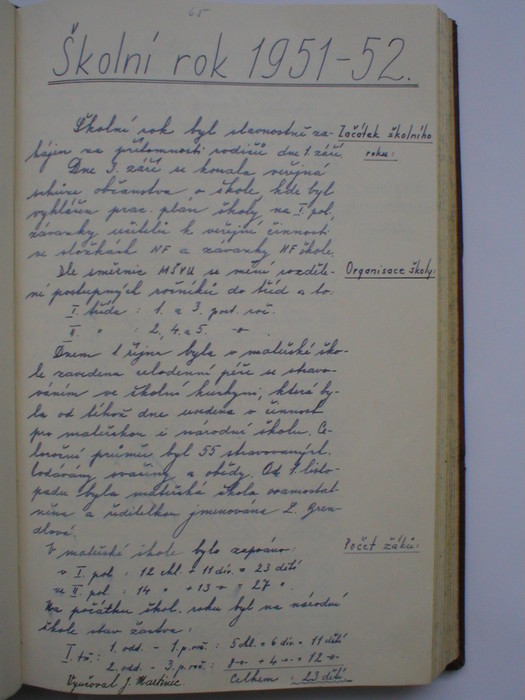 65
Školní rok 1951-52.
Školní rok byl slavnostně za-
Začátek školního
hájen za přítomnosti rodičů dne 1. září.
roku:
Dne 3. září se konala veřejná
schůze občanstva o škole, kde byl
vyhlášen prac. plán školy na I. pol.,
závazky učitelů k veřejné činnosti
ve složkách NF a závazky NF škole.
Dle směrnic MŠVU se mění rozděle-
Organisace školy:
ní postupných ročníků do tříd a to:
I. třída : 1. a 3. post. roč.
II. " : 2., 4. a 5. -"-
Dnem 1. října byla v mateřské ško-
le zavedena celodenní péče se stravo-
váním ve školní kuchyni, která by-
la od téhož dne uvedena v činnost
pro mateřskou i národní školu. Ce-
loroční průměr byl 55 stravovaných.
Podávány svačiny a obědy. Od 1. listo-
padu byla mateřská škola osamostat-
něna a ředitelkou jmenována L.
V mateřské škole bylo zapsáno:
Počet žáků:
v I. pol. : 12 chl. + 11 div. = 23 dětí
ve II. pol. : 14 " + 13 " = 27 "
Na počátku škol. roku byl na národní
škole stav žactva:
I. tř.: 1. odd. - 1. p. roč.: 5 chl. + 6 div. = 11 dětí
2. odd. - 3. p. roč.: 8 -"- + 4 -"- = 12 -"-
Vyučoval J. Martinec. Celkem : 23 dětí.